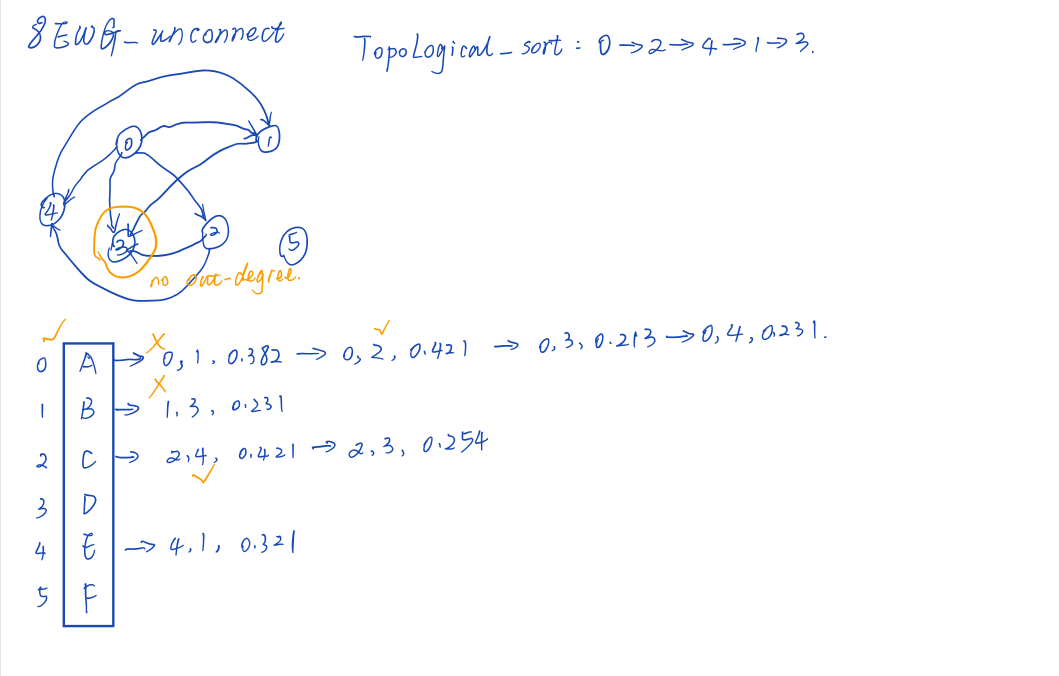 8EWG_unconnect
Topological_sort : 0→2→4→1→3.
0
1
4
3
2
5
no out-degree.
✓
0 A → X 0, 1, 0.382 → ✓ 0, 2, 0.421 → 0, 3, 0.213 → 0, 4, 0.231.
1 B → X 1, 3, 0.231
2 C → 2, 4, 0.421 → 2, 3, 0.254
✓
3 D
4 E → 4, 1, 0.321
5 F